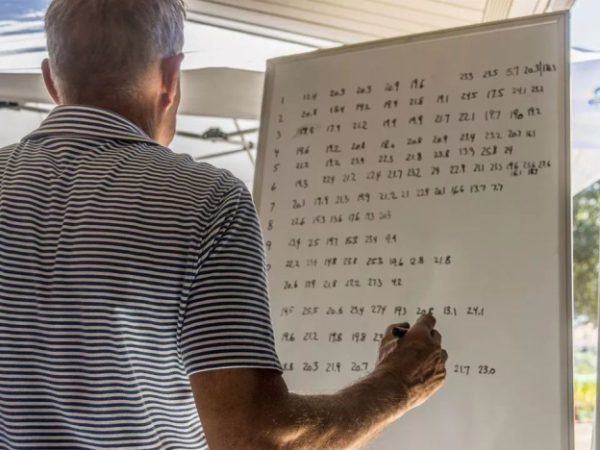 1 12.4 20.3 20.3 20.9 19.6 23.3 23.5 5.7
2 20.8 18.4 19.2 18.9 21.8 19.1 24.5 17.5 24.1 23.2
3 17.9 21.2 19.9 19.9 21.7 22.1 18.7 19.2
4 19.6 19.2 20.8 20.8 20.9 23.4 23.2 20.7 16.1
5 21.2 19.2 23.9 22.3 21.8 23.8 13.3 25.8 24
6 19.3 22.4 21.2 22.4 21.7 23.2 24 22.9 21.1 21.3 19.6 21.6 23.6
7 20.1 17.9 21.3 19.9 21.2 21 22.9 20.1 16.6 13.7 7.7
8 22.6 15.3 13.6 17.6 17.3 20.3
9 13.4 25 19.7 15.8 23.4 9.9
22.2 14.8 23.8 25.3 19.6 12.8 21.8
20.6 17.9 21.8 22.2 27.3 4.2
19.5 25.5 20.6 23.4 27.4 19.3 13.1 24.1
19.6 21.2 19.8 19.8
20.3 21.9 20.7 21.7 23.0